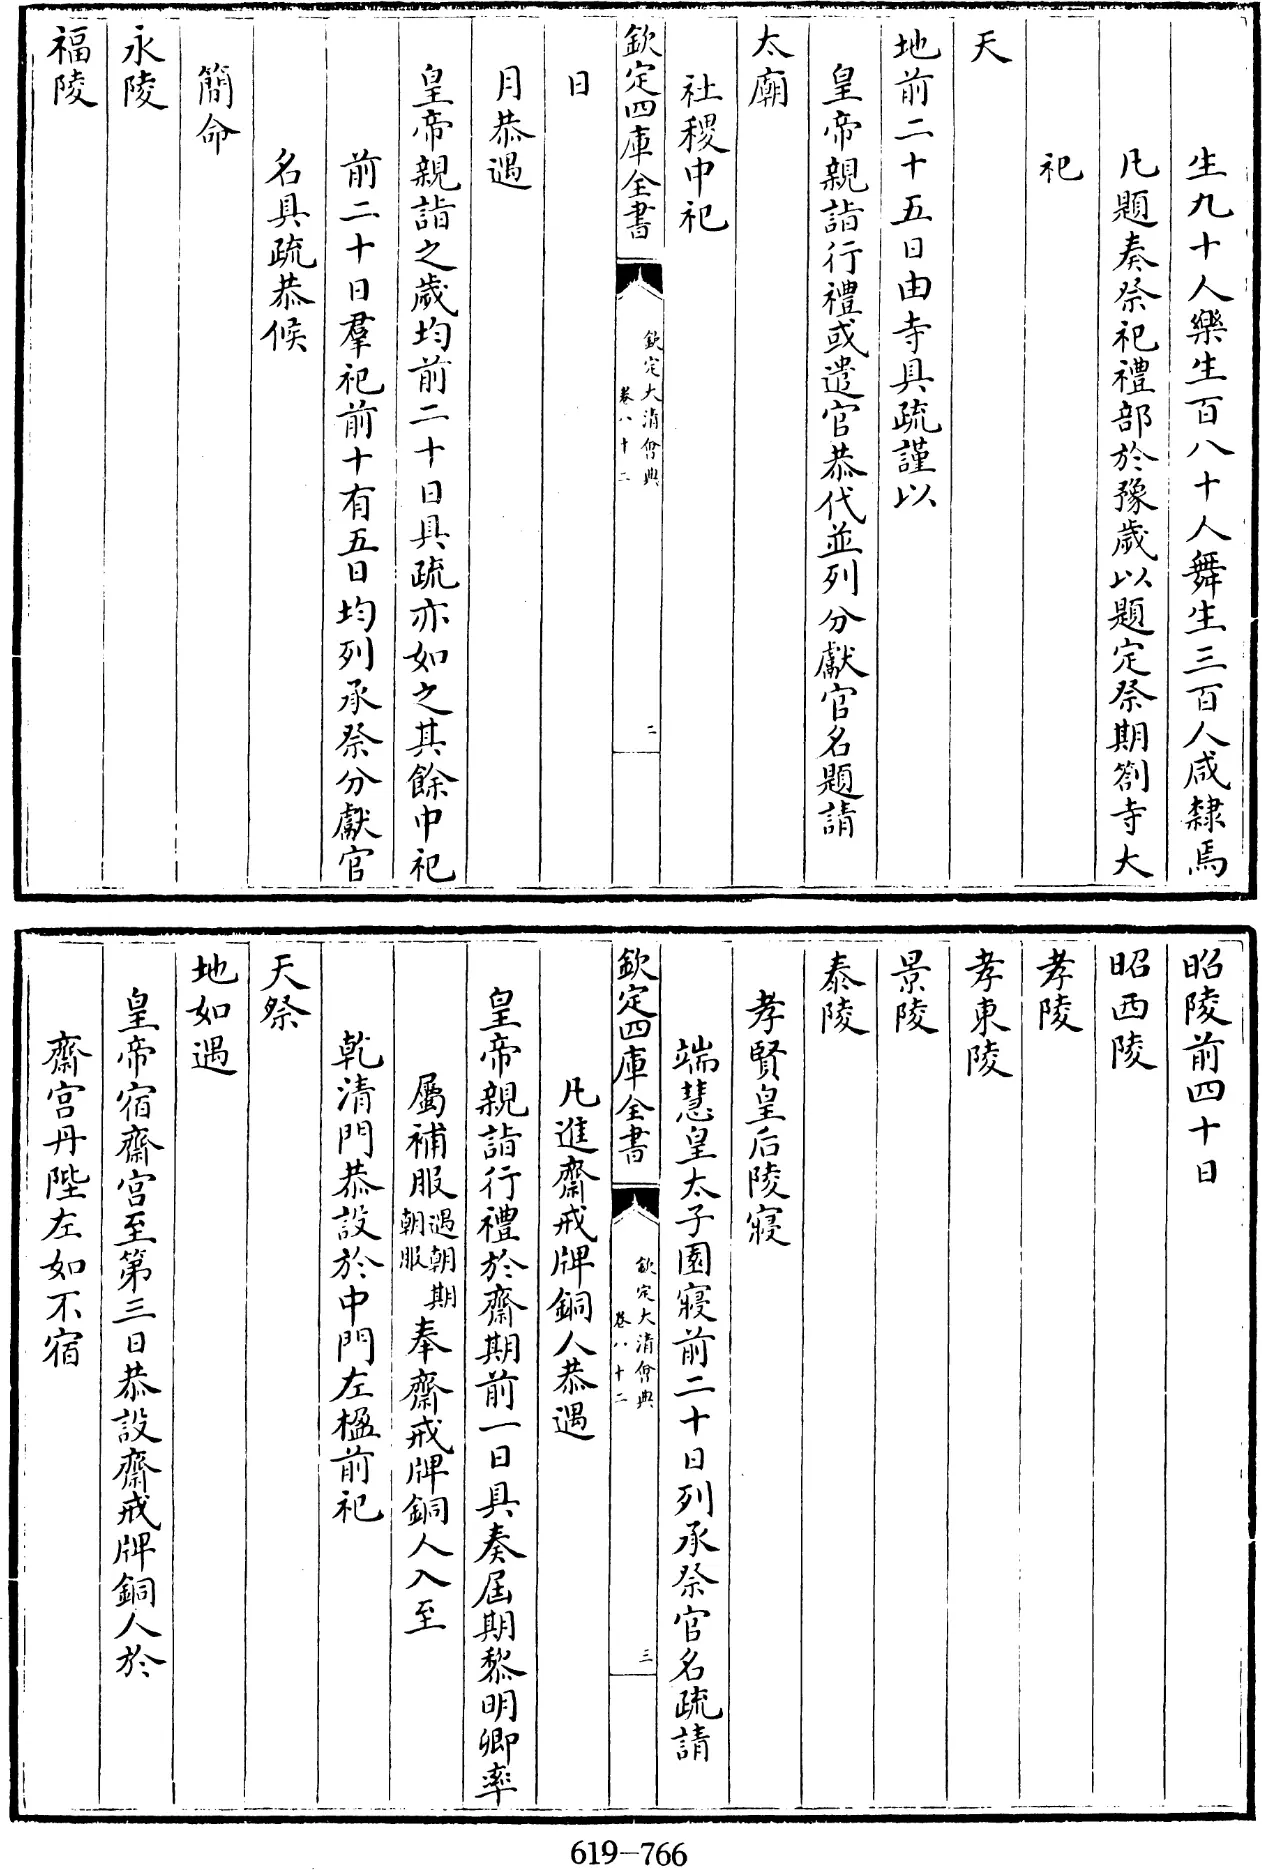 生九十人樂生百八十人舞生三百人咸隸焉
凡題奏祭祀禮部於豫歲以題定祭期劄寺大
祀
天
地前二十五日由寺具疏謹以
皇帝親詣行禮或遣官恭代並列分獻官名題請
太廟
社稷中祀
欽定四庫全書
欽定大清會典
卷八十二
二
日
月恭遇
皇帝親詣之歲均前二十日具疏亦如之其餘中祀
前二十日羣祀前十有五日均列承祭分獻官
名具疏恭候
簡命
永陵
福陵
昭陵前四十日
昭西陵
孝陵
孝東陵
景陵
泰陵
孝賢皇后陵寢
端慧皇太子園寢前二十日列承祭官名疏請
欽定四庫全書
欽定大清會典
卷八十二
三
凡進齋戒牌銅人恭遇
皇帝親詣行禮於齋期前一日具奏屆期黎明卿率
屬補服遇朝期朝服奉齋戒牌銅人入至
乾清門恭設於中門左楹前祀
天祭
地如遇
皇帝宿齋宮至第三日恭設齋戒牌銅人於
齋宮丹陛左如不宿
619-766